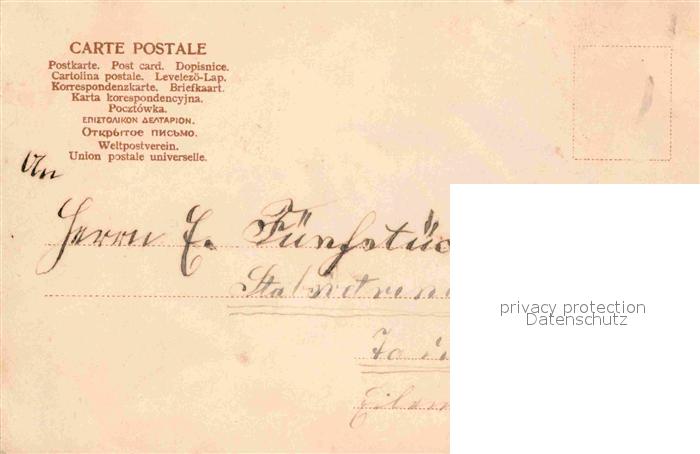 CARTE POSTALE
Postkarte. Post card. Dopisnice.
Cartolina postale. Levelező-Lap.
Korrespondenzkarte. Briefkaart.
Karta korespondencyjna.
Pocztówka.
ΕΠΙΣΤΟΛΙΚΟΝ ΔΕΛΤΑΡΙΟΝ.
Открытое письмо.
Weltpostverein.
Union postale universelle.
An
Herrn E. Fünfstüc
privacy protection
Datenschutz